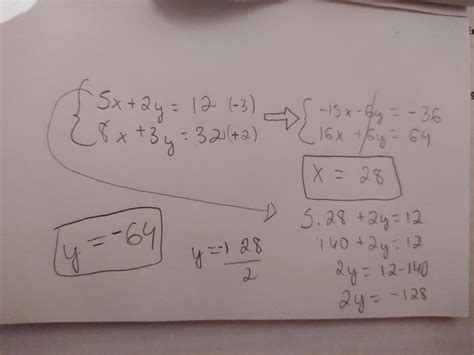 5x+2y=12 (-3)
8x+3y=32(+2)
-15x-6y=-36
16x+6y=64
x = 28
5.28+2y=12
140+2y=12
2y=12-140
2y=-128
y=-128/2
y=-64